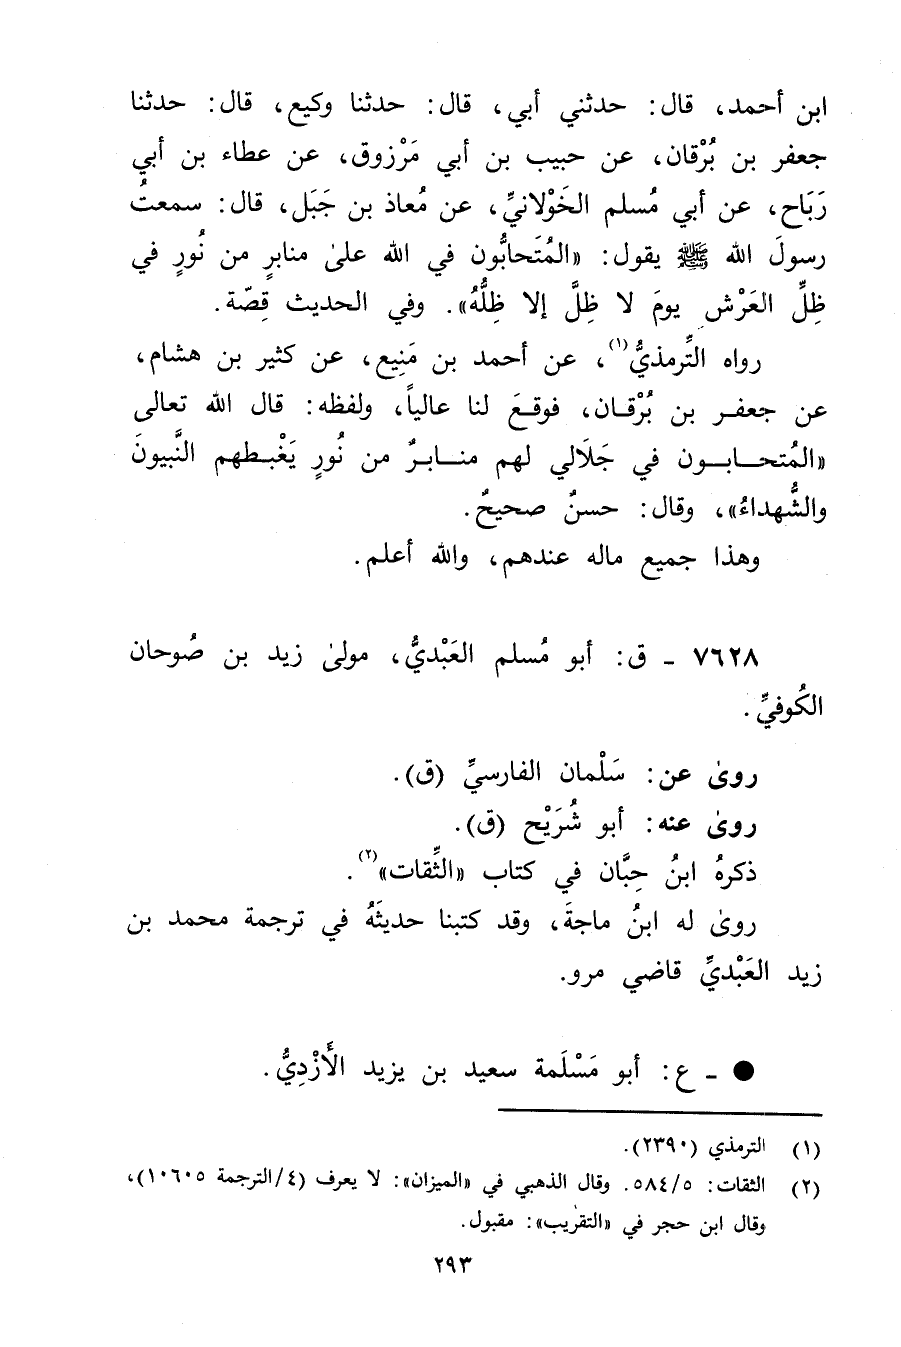 ابن أحمد، قال: حدثني أبي، قال: حدثنا وكيع، قال: حدثنا
جعفر بن بُرْقان، عن حبيب بن أبي مَرْزوق، عن عطاء بن أبي
رَبَاح، عن أبي مُسلم الخَوْلانيِّ، عن مُعاذ بن جَبَل، قال: سمعتُ
رسولَ الله ﷺ يقول: «المُتَحابُّون في الله علىٰ منابرٍ من نُورٍ في
ظِلِّ العَرْشِ يومَ لا ظِلَّ إلا ظِلُّهُ». وفي الحديث قِصّة.
رواه التِّرمذيُّ(١)، عن أحمد بن مَنِيع، عن كثير بن هشام،
عن جعفر بن بُرْقان، فوقعَ لنا عالياً، ولفظه: قال الله تعالى
«المُتحابون في جَلَالي لهم منابرٌ من نُورٍ يَغْبطهم النَّبيونَ
والشُّهداءُ»، وقال: حسنٌ صحيحٌ.
وهذا جميع ماله عندهم، والله أعلم.
٧٦٢٨ - ق: أبو مُسلم العَبْديُّ، مولىٰ زيد بن صُوحان
الكُوفيِّ.
روىٰ عن: سَلْمان الفارسيِّ (ق).
روىٰ عنه: أبو شُرَيْح (ق).
ذكرهُ ابنُ حِبَّان في كتاب «الثِّقات»(٢).
روىٰ له ابنُ ماجةَ، وقد كتبنا حديثَهُ في ترجمة محمد بن
زيد العَبْديِّ قاضي مرو.
● - ع: أبو مَسْلَمة سعيد بن يزيد الأَزْدِيُّ.
(١) الترمذي (٢٣٩٠).
(٢) الثقات: ٥/٥٨٤. وقال الذهبي في «الميزان»: لا يعرف (٤/الترجمة ١٠٦٠٥)،
وقال ابن حجر في «التقريب»: مقبول.
٢٩٣